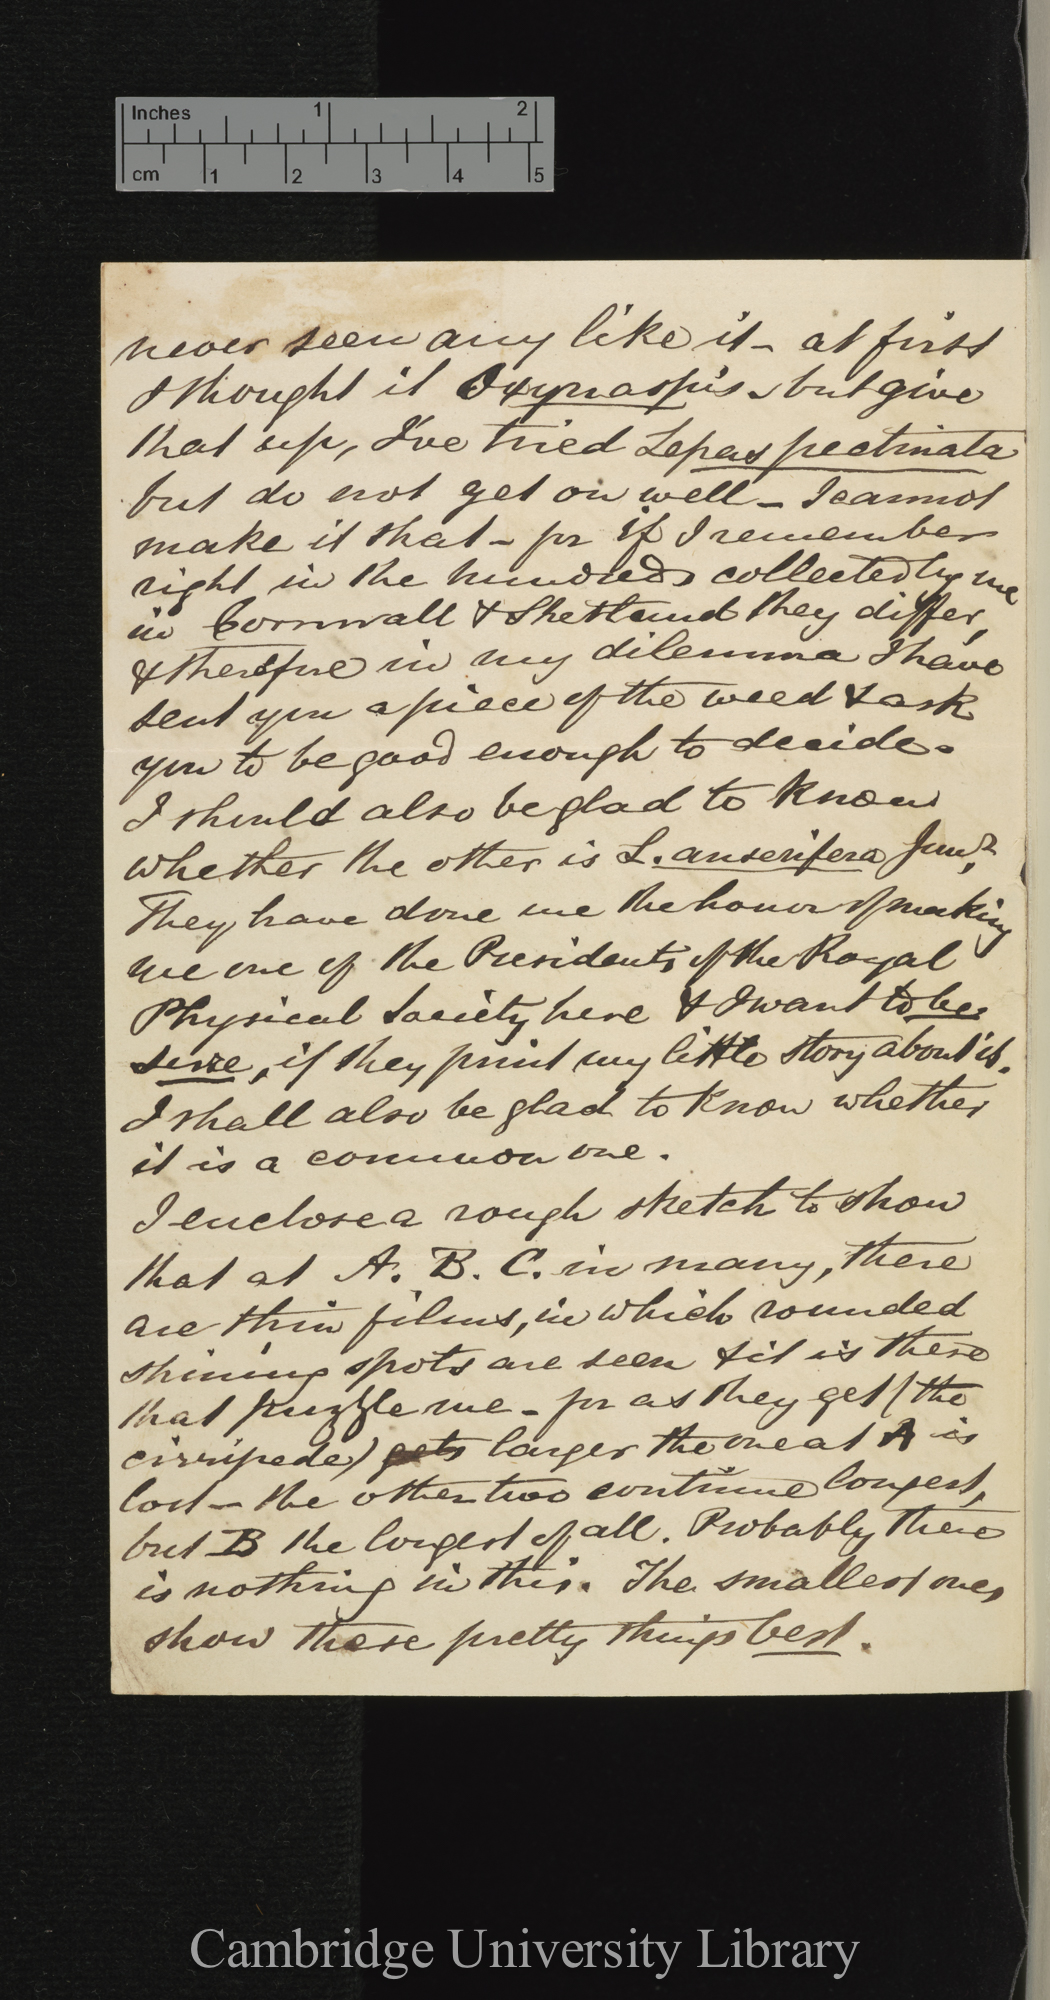 Inches 1 2
cm 1 2 3 4 5
never seen any like it - at first
I thought it Oxynaspis - but give
that up, I've tried Lepas pectinata
but do not get on well - I cannot
make it that - for if I remember
right in the hundreds collected by me
in Cornwall & Shetland they differ,
& therefore in my dilemma I have
sent you a piece of the weed & ask
you to be good enough to decide.
I should also be glad to know
whether the other is L. anserifera Junr,
They have done me the honor of making
me one of the Presidents of the Royal
Physical Society here & I want to be
sure, if they print my little story about it.
I shall also be glad to know whether
it is a common one.
I enclose a rough sketch to show
that at A. B. C. in many, there
are thin films, in which rounded
shining spots are seen & it is these
that puzzle me - for as they get (the
cirripede) gets larger the one at A is
lost - the other two continue longest,
but B the longest of all. Probably there
is nothing in this. The smallest ones
show these pretty things best.
Cambridge University Library